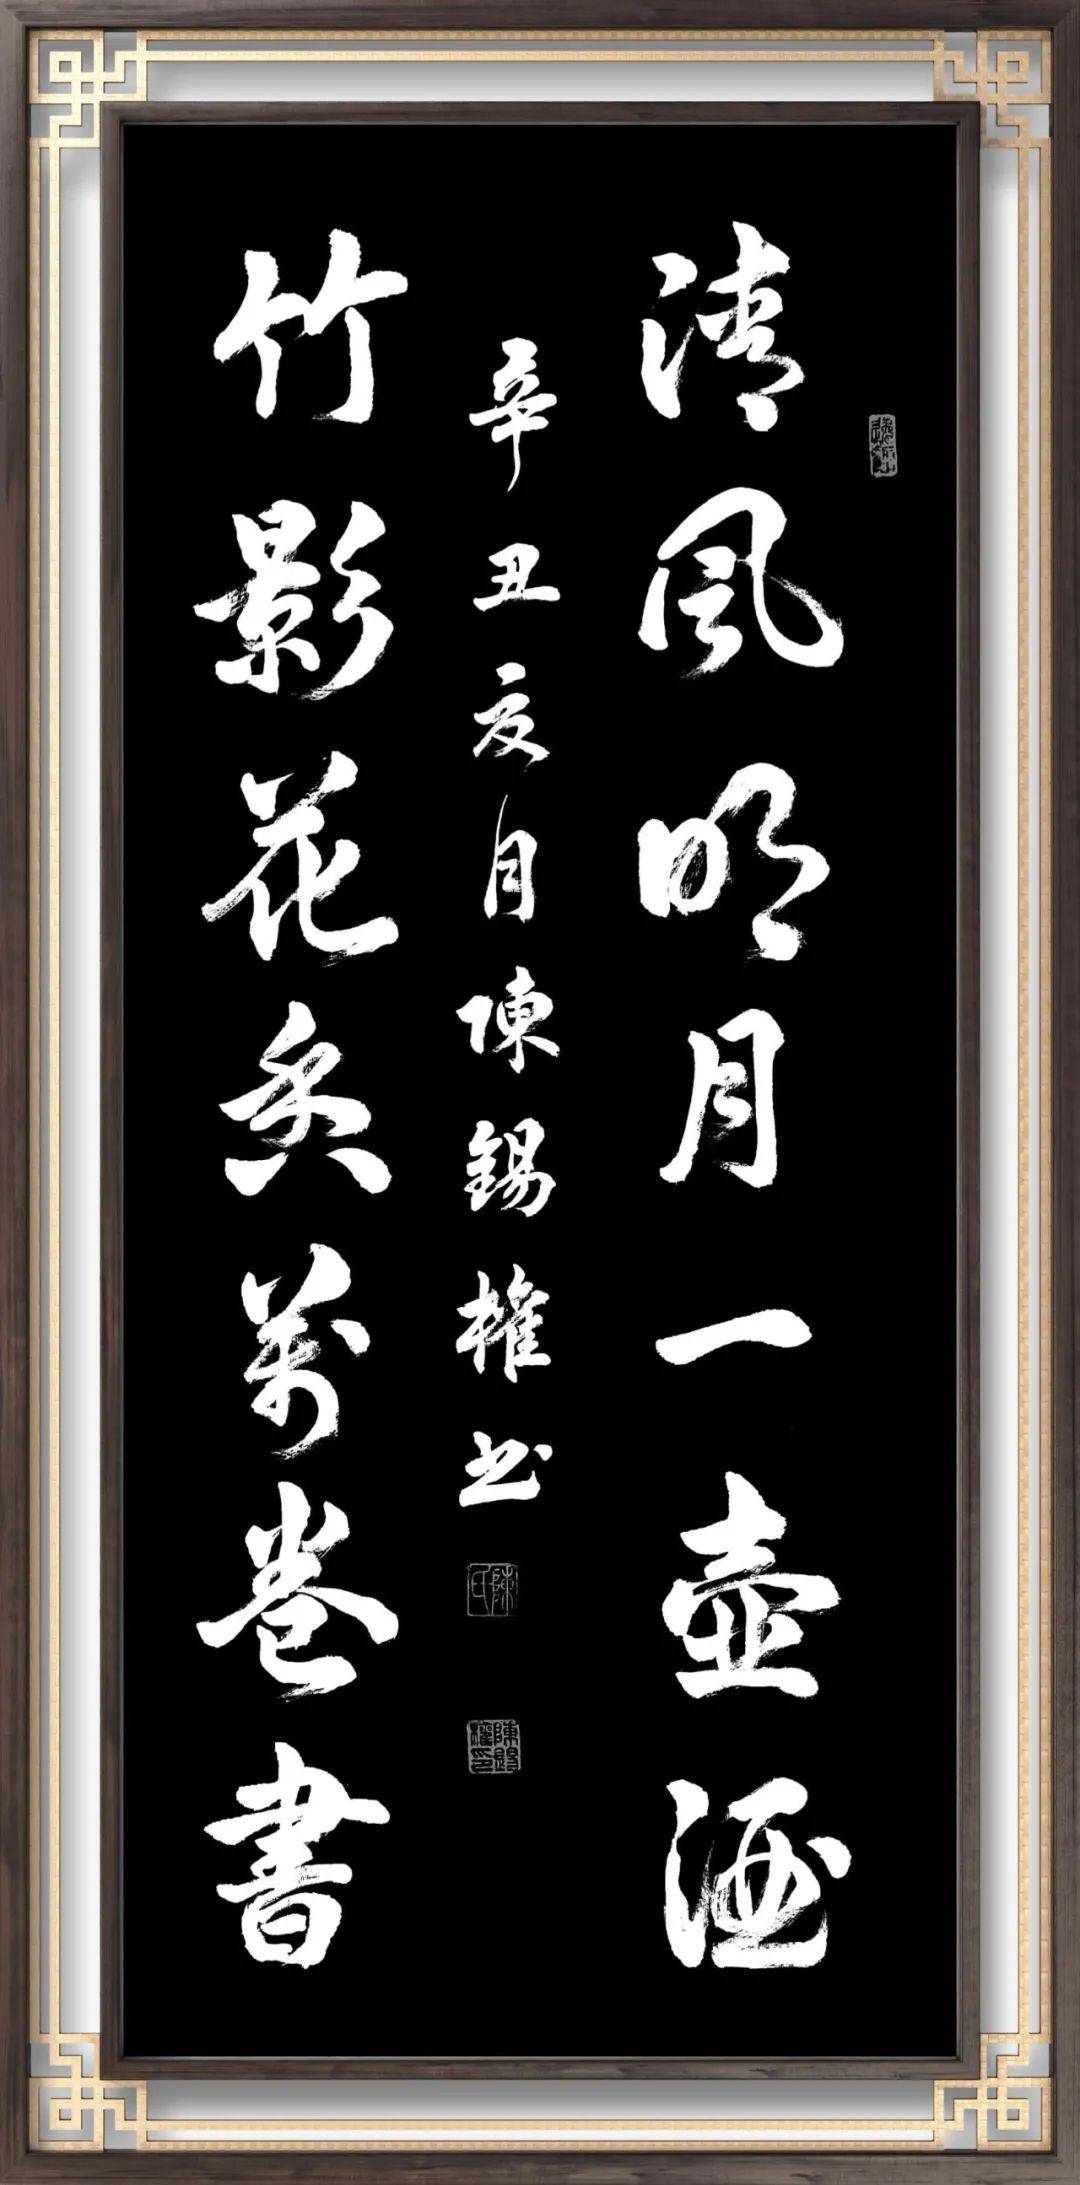 清風明月一壺酒
竹影花香萬卷書
辛丑夏月陳錫權书
陳氏
陳錫權印